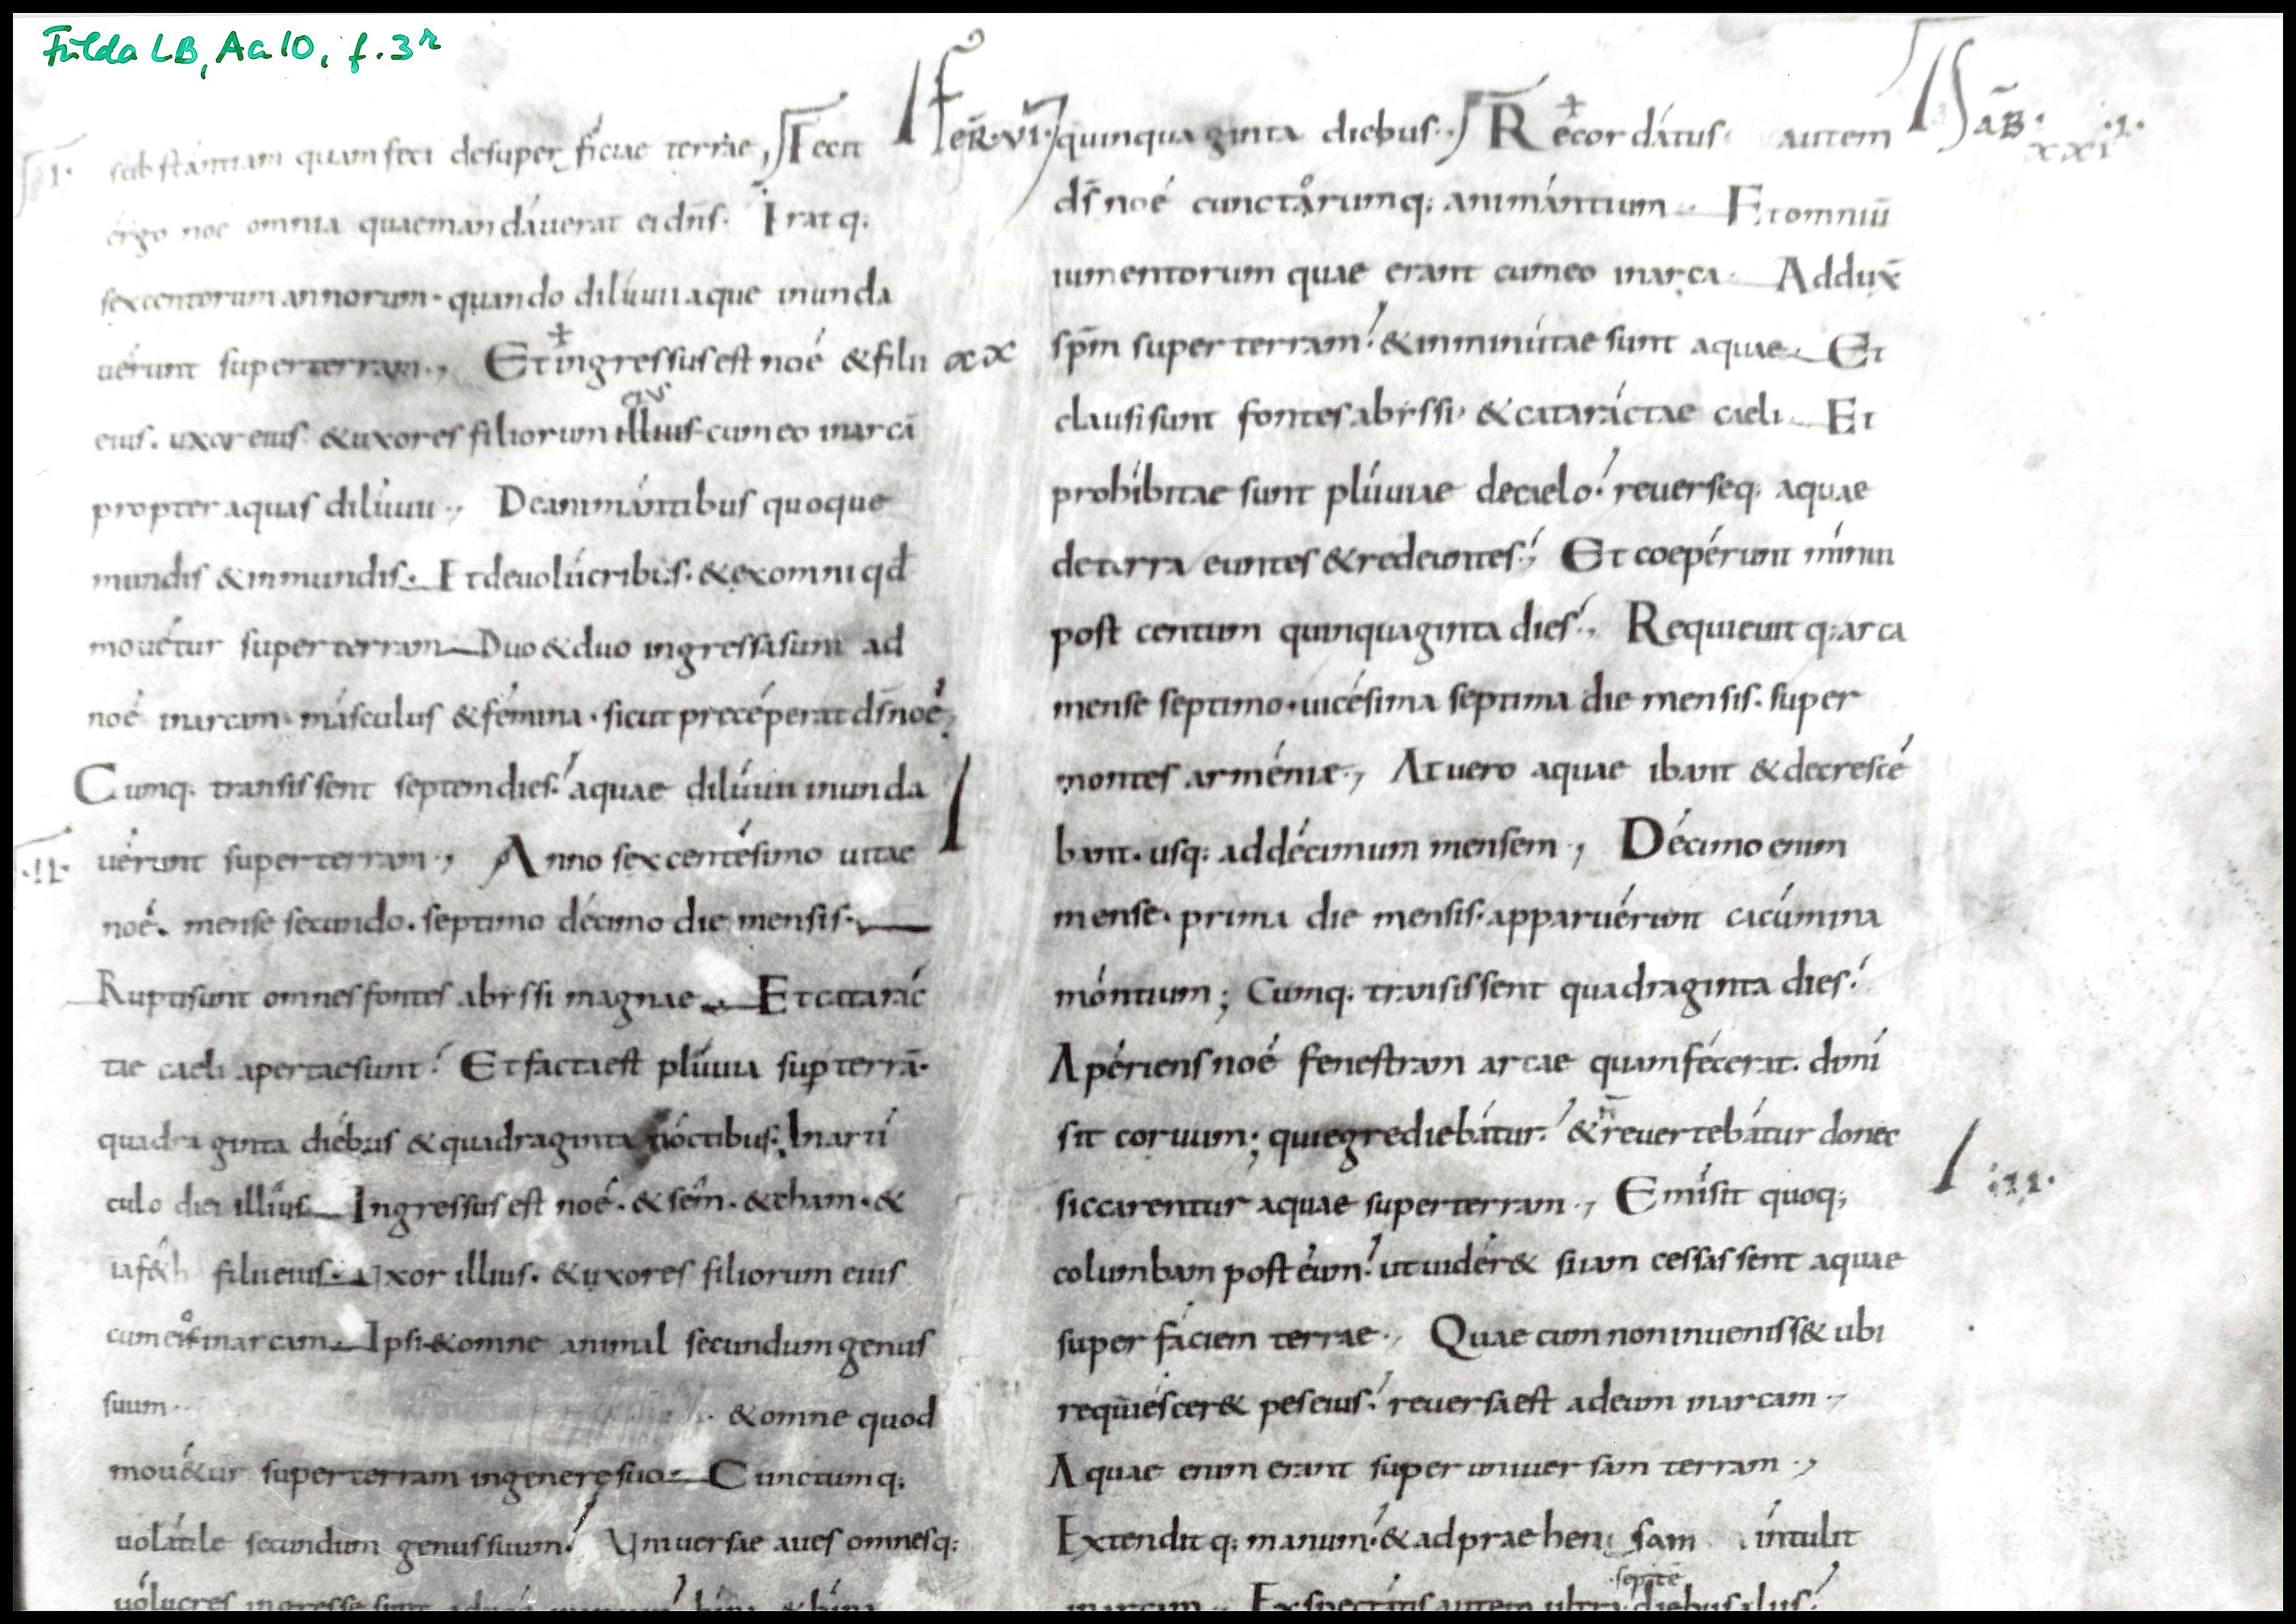 Fulda LB, Aa 10, f. 3r
.I. substántiam quam feci desuperficiae terrae, Fecit
ergo noe omnia quaemandáuerat ei dn̄s. Erat q;
sexcentorum annorum. quando dilúuii aque inunda
uérunt superterram., Et ingressus est noé & filii xx
eius. uxor eius & uxores filiorum illius cum eo in arcā
propter aquas dilúuii., De animántibus quoque
mundis & inmundis. Et deuolúcribus. & exomni qd̄
mouétur super terram Duo & duo ingressa sunt ad
noé in arcam. másculus & fémina. sicut precéperat dn̄s noé,
Cumq; transissent septemdies! aquae dilúuii inunda
.II. uérunt superterram., Anno sexcentésimo uitae
noé. mense secundo. septimo décimo die mensis.
Rupti sunt omnes fontes abyssi magnae. Et catarác
tae caeli apertae sunt! Et facta est plúuia sup terrā.
quadraginta diébus & quadraginta nóctibus; In artí
culo diei illíus Ingressus est noé. & sém. & cham. &
iaf&h filii eius. Uxor illius. & uxores filiorum eius
cum eis in arcam. Ipsi & omne animal secundum genus
suum. & omne quod
mou&ur superterram in genere suo. Cunctumq;
uolátile secundum genus suum! Uniuersae aues omnesq;
uólucres ingresse sunt ad noé in arcam! bina & bina
FER. VI. quinquaginta diebus., Recordátus autem SAB. .I. xxi
ds̄ noé cunctárumq; animántium. Et omniū
iumentorum quae erant cum eo in arca. Addux̄
sp̄m super terram! & inminútae sunt aquae. Et
clausi sunt fontes abyssi & cataráctae caeli. Et
prohíbitae sunt plúuiae decaelo! reuerseq; aquae
de terra euntes & redeuntes!, Et coepérunt mínui
post centum quinquaginta dies!, Requieuit q; arca
mense septimo. uicésima septima die mensis. super
montes arméniae., At uero aquae ibant & decrescé
bant. usq; ad décimum mensem., Décimo enim
mense. prima die mensis. apparuérunt cacúmina
móntium; Cumq; transissent quadraginta dies!
Apériens noé fenestram arcae quam fécerat. dimí
sit coruum; qui egrediebátur! & n̄ reuertebátur donec
siccarentur aquae superterram., Emísit quoq; .III.
columbam post éum! ut uidér& si iam cessassent aquae
super fáciem terrae., Quae cum non inueniss& ubi
requiéscer& pes eius! reuersa est ad eum in arcam.,
Aquae enim erant super uniuersam terram.,
Extendit q; manum! & ad praehensam intulit
septē
in arcam., Exspectátis autem ultra diebus aliis!